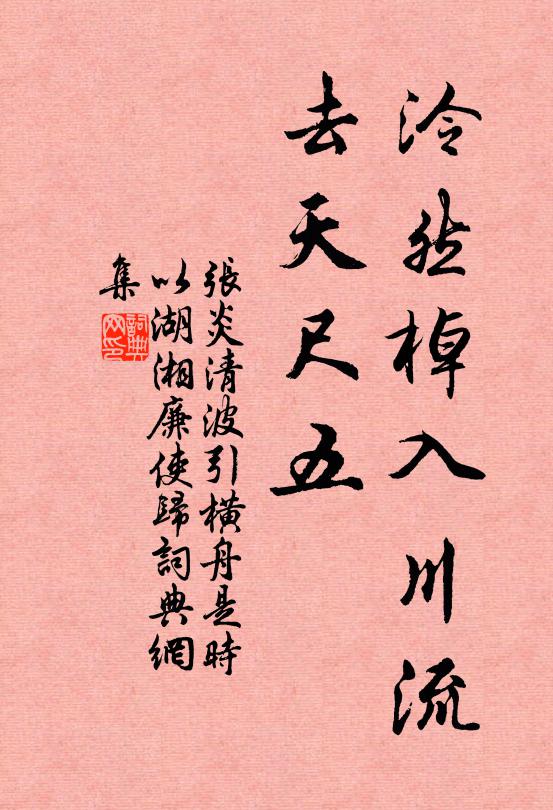 泠然棹入川流
去天尺五
張炎清波引横舟是時
以湖湘廉使歸詞典網
集
詞典網印